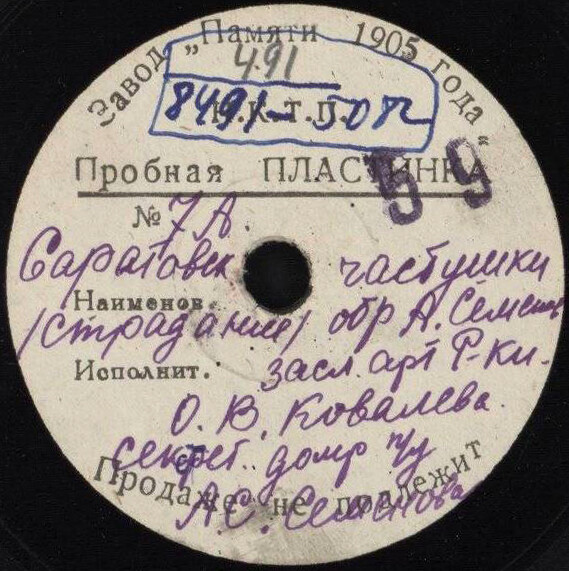 Завод „Памяти 1905 года“
491
8491-50г
Н.К.Т.П.
Пробная ПЛАСТИНКА
59
№ 7А.
Саратовск частушки
Наименов.
/страдание/ обр А. Семенов
Исполнит. засл. арт Р-ки.
О. В. Ковалева.
секстет домр п/у
А.С. Семенова
Продаже не подлежит